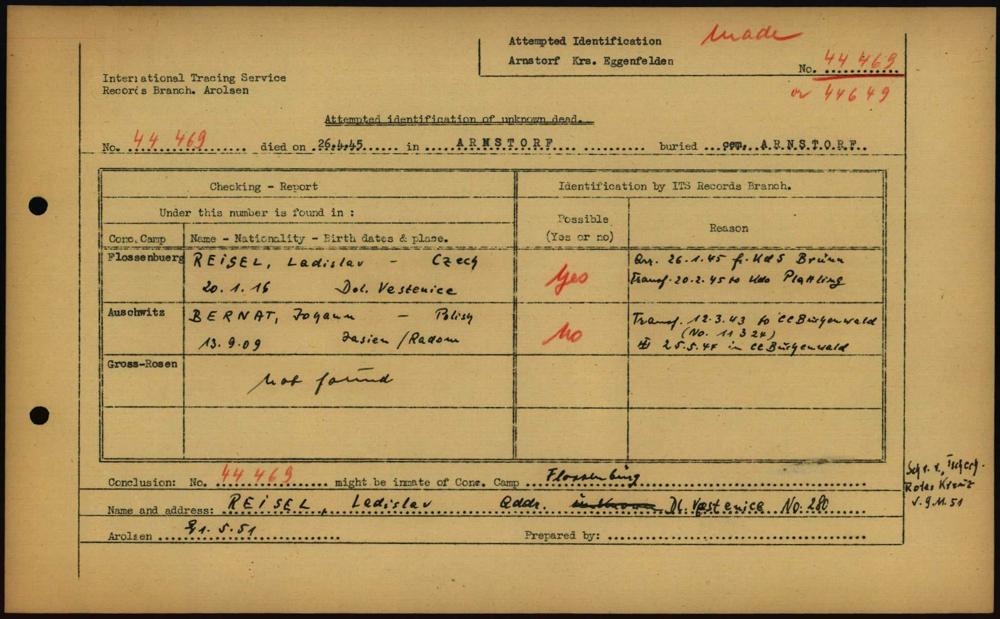 Attempted Identification
Arnstorf Krs. Eggenfelden
Made
No. 44 469
or 44649
International Tracing Service
Records Branch. Arolsen
Attempted identification of unknown dead.
No. 44 469 died on 26.4.45 in ARNSTORF buried cem. ARNSTORF
Checking - Report
Identification by ITS Records Branch.
Under this number is found in :
Possible
(Yes or no)
Reason
Conc. Camp
Name - Nationality - Birth dates & place.
Flossenbuerg REISEL, Ladislav - Czech
20.1.16 Dol. Vestenice
Yes
Arr. 26.1.45 f. KdS Brünn
Transf. 20.2.45 to Kdo Plattling
Auschwitz BERNAT, Johann - Polish
13.9.09 Jasien / Radom
No
Transf. 12.3.43 to CC Buchenwald
(No. 11 324)
25.5.44 in CC Buchenwald
Gross-Rosen
not found
Conclusion: No. 44 469 might be inmate of Conc. Camp Flossenbürg
Name and address: REISEL, Ladislav Addr. Dl. Vestenice No. 280
Arolsen 21.5.51 Prepared by:
Tschech.
Rotes Kreuz